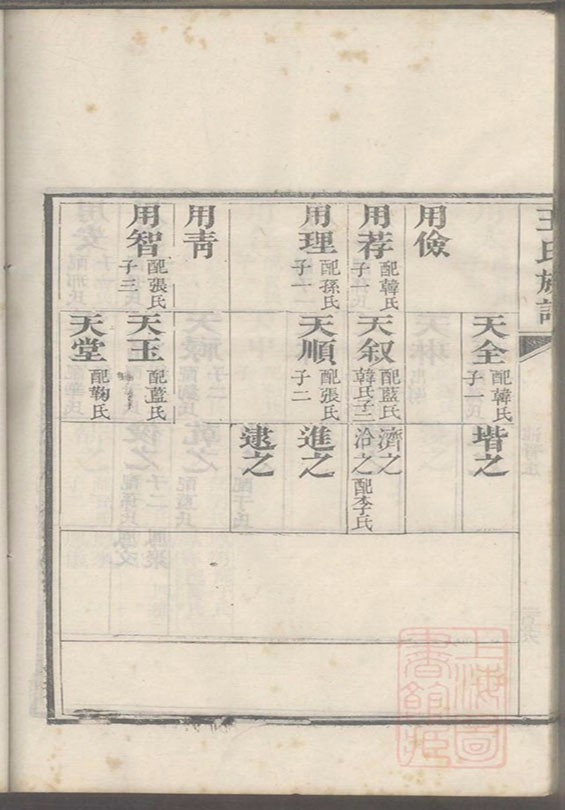 王氏族譜
天全 配韓氏 子一
堦之
用儉
用荐 配韓氏 子一
天叙 配藍氏 韓氏子二
濟之
洽之 配李氏
用理 配孫氏 子一
天順 配張氏 子二
進之
逮之
用靑
用智 配張氏 子三
天玉 配藍氏
天堂 配鞠氏
上海圖書館藏